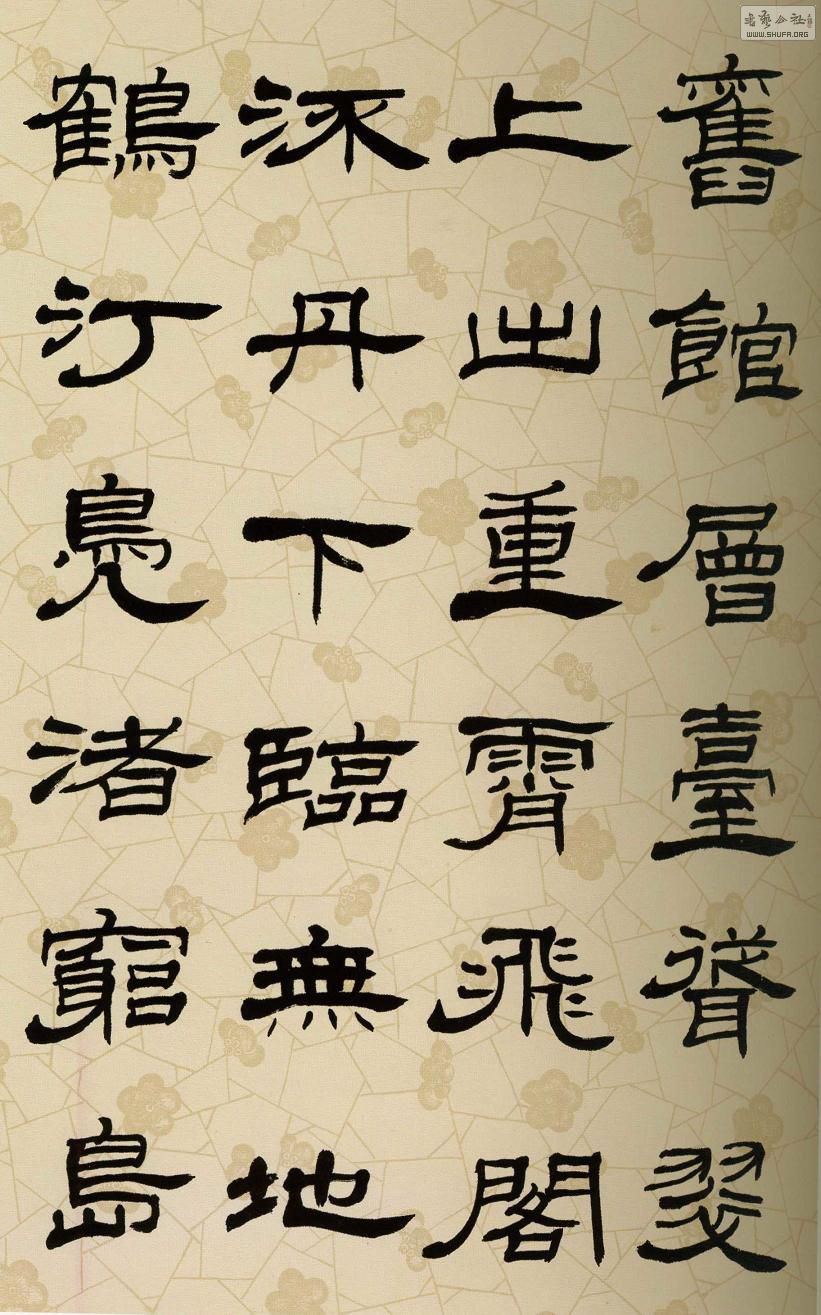 舊館層臺聳翠
上出重霄飛閣
流丹下臨無地
鶴汀鳧渚窮島
书艺公社
WWW.SHUFA.ORG